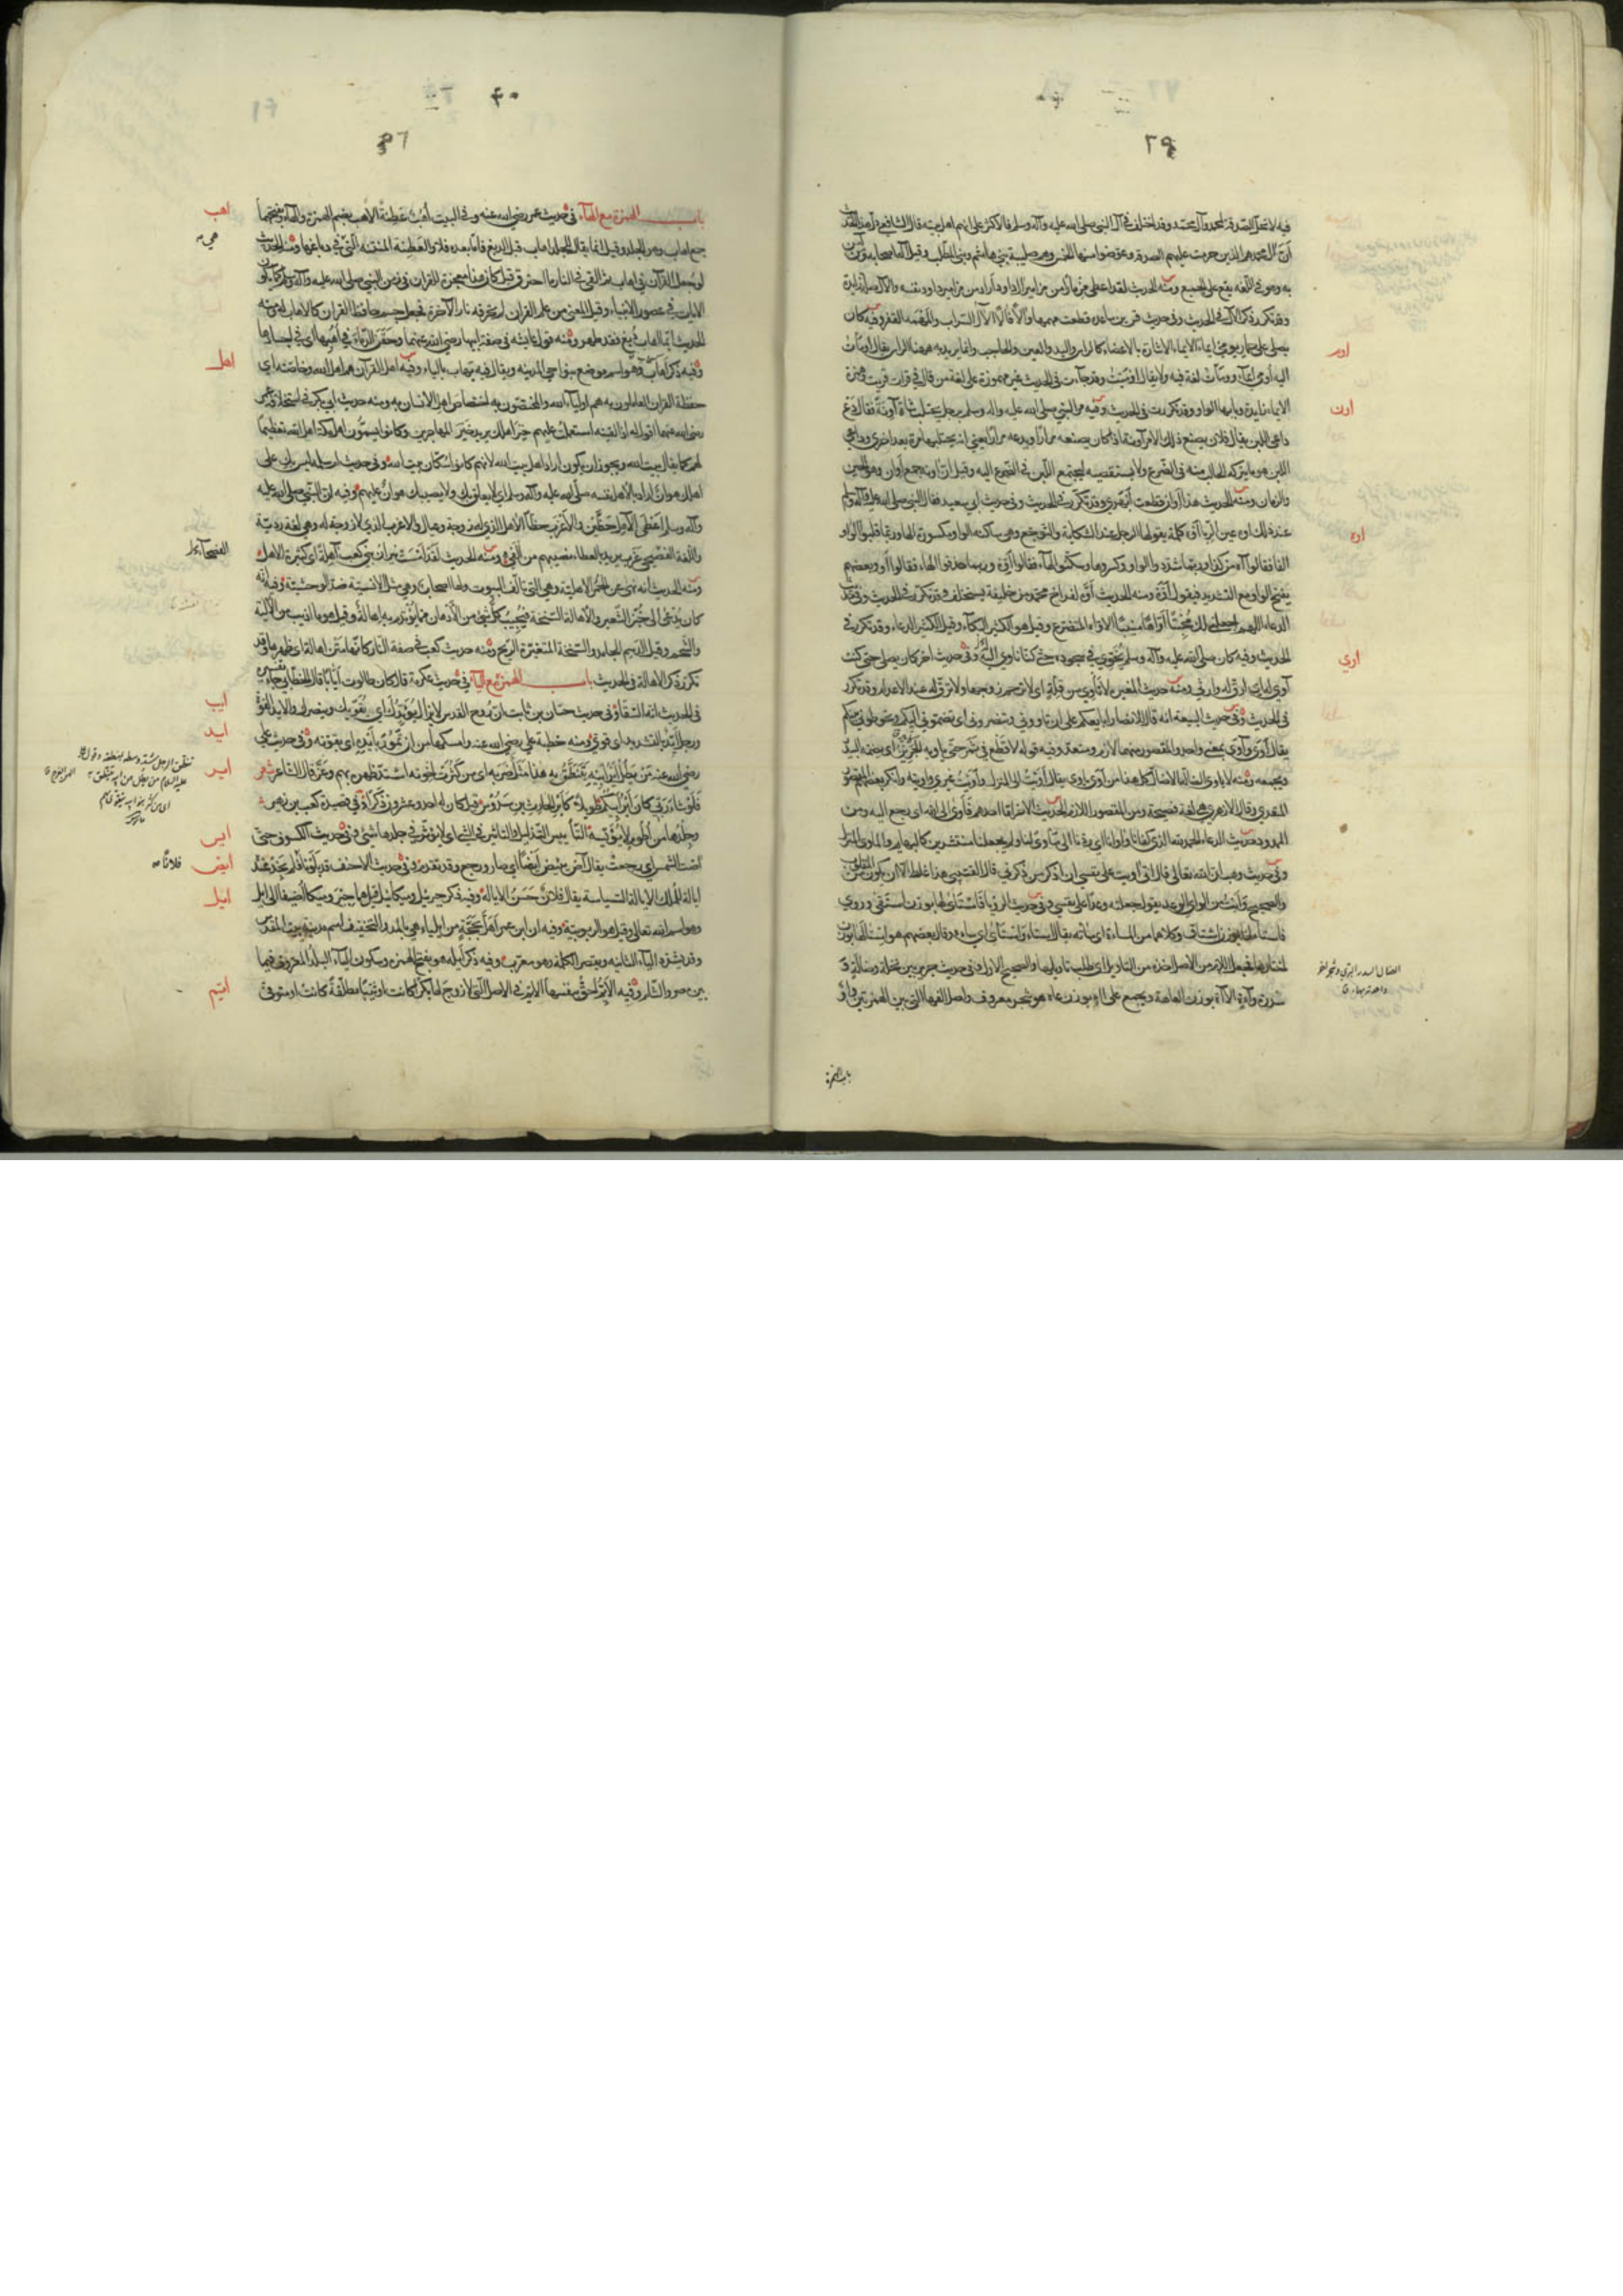 فيه لا تحل الصدقة لمحمد وآل محمد وقد اختلف في آل النبي صلى الله عليه وآله وسلم فالاكثر على انهم اهل بيته قال الشافعي
آل محمد هم الذين حرمت عليهم الصدقة وعوضوا منها الخمس وهم صليبة بني هاشم وبني المطلب وقيل آله اصحابه ومن آمن
به وهو في اللغة يقع على الجميع ومنه الحديث لقد اعطي مزمارا من مزامير آل داود اراد من مزامير داود نفسه والآل صلة زايدة
وقد تكرر ذكر الآل في الحديث وفي حديث قس بن ساعدة قطعت مهمها وآلا فآلا الآل السراب والمهمه القفر وفيه كان
اوم
يصلي على حمار يومئ ايماء الايماء الاشارة بالاعضاء كالراس واليد والعين والحاجب وانما يريد به ههنا الراس يقال اومأت
اليه اومئ ايماء وومأت لغة فيه ولا يقال اوميت وقد جاءت في الحديث غير مهموزة على لغة من قال في قرأت قريت وهمزة
الايماء زايدة وبابها الواو وقد تكررت في الحديث وفيه مر النبي صلى الله عليه وآله وسلم برجل يحتلب شاة آونة فقال دع
اون
داعي اللبن يقال فلان يصنع ذلك الامر آونة اذا كان يصنعه مرارا ويدعه مرارا يعني انه يحتلبها مرة بعد اخرى وداعي
اللبن هو ما يتركه الحالب منه في الضرع ولا يستقصيه ليجتمع اللبن في الضرع اليه وقيل ان آونة جمع اوان وهو الحين
والزمان ومنه الحديث هذا اوان قطعت ابهري وقد تكرر في الحديث وفي حديث ابي سعيد فقال النبي صلى الله عليه وآله وسلم
اوه
عند ذلك اوه عين الربا اوه كلمة يقولها الرجل عند الشكاية والتوجع وهي ساكنة الواو مكسورة الهاء وربما قلبوا الواو
الفا فقالوا آه من كذا وربما شددوا الواو وكسروها وسكنوا الهاء فقالوا اوه وربما حذفوا الهاء فقالوا او وبعضهم
يفتح الواو مع التشديد فيقول اوه ومنه الحديث اوه لفراخ محمد من خليفة يستخلف وقد تكرر في الحديث وفي حديث
الدعاء اللهم اجعلني لك مخبتا اواها منيبا الاواه المتضرع وقيل هو الكثير البكاء وقيل الكثير الدعاء وقد تكرر في
اوي
الحديث وفيه كان صلى الله عليه وآله وسلم يخوي في سجوده حتى كنا ناوي له وفي حديث اخر كان يصلي حتى كنت
آوي له اي ارق له وارثي ومنه حديث المغيرة لا تأوي من قلة اي لا ترحم زوجها ولا ترق له عند الاعدام وقد تكرر
في الحديث وفي حديث البيعة انه قال للانصار ابايعكم على ان تاووني وتنصروني اي تضموني اليكم وتحوطوني بينكم
يقال اوى وآوى بمعنى واحد والمقصور منهما لازم ومتعد وفيه قوله لا قطع في ثمر حتى ياويه الجرين اي يضمه البيدر
ويجمعه ومنه لا ياوي الضالة الا ضال كل هذا من اوى ياوي يقال اويت الى المنزل واويت غيري وآويته وانكر بعضهم المقصور
المتعدي وقال الازهري هي لغة فصيحة ومن المقصور اللازم الحديث الاخر اما احدهم فاوى الى الله اي رجع اليه ومن
الممدود حديث الدعاء الحمد لله الذي كفانا وآوانا اي ردنا الى مأوى لنا ولم يجعلنا منتشرين كالبهايم والماوى المنزل
وفي حديث وهب ان الله تعالى قال اني اويت على نفسي ان اذكر من ذكرني قال القتيبي هذا غلط الا ان يكون من المقلوب
والصحيح وأيت من الوأي الوعد يقول جعلته وعدا على نفسي وفي حديث الرؤيا فاستأى لها بوزن استقى وروي
فاستاء لها بوزن استاق وكلاهما من المساءة اي ساءته يقال استاء واستأى اي ساءه وقال بعضهم هو استالها بوزن
اختارها فجعل اللام من الاصل اخذه من التاويل اي طلب تاويلها والصحيح الاول وفي حديث جرير بين نخلة وضالة و
سدرة وآءة الآءة بوزن العاهة ويجمع على آء بوزن عاه هو شجر معروف واصل الفها التي بين الهمزتين واو
الضال السدر البري
باب الهمزة
باب الهمزة مع الهاء في حديث عمر رضي الله عنه وفي البيت أهب عطنة الاهب بضم الهمزة والهاء وبفتحهما
اهب
جمع اهاب وهو الجلد وقيل انما يقال للجلد اهاب قبل الدبغ فاما بعده فلا والعطنة المنتنة التي في دباغها ومنه الحديث
هي
لو جعل القرآن في اهاب ثم القي في النار ما احترق قيل كان هذا معجزة للقرآن في زمن النبي صلى الله عليه وآله وسلم كما تكون
الايات في عصور الانبياء وقيل المعنى من علم القرآن لم تحرقه نار الآخرة فجعل جسم حافظ القرآن كالاهاب له ومنه
الحديث ايما اهاب دبغ فقد طهر ومنه قول عايشة في صفة ابيها رضي الله عنهما وحقن الدماء في اهبها اي في اجسادها
وفيه ذكر اهاب وهو اسم موضع بنواحي المدينة ويقال فيه يهاب بالياء وفيه اهل القرآن هم اهل الله وخاصته اي
اهل
حفظة القرآن العاملون به هم اولياء الله والمختصون به اختصاص اهل الانسان به ومنه حديث ابي بكر في استخلافه عمر
رضي الله عنهما اقول له اذا لقيته استعملت عليهم خير اهلك يريد خير المهاجرين وكانوا يسمون اهل مكة اهل الله تعظيما
لهم كما يقال بيت الله ويجوز ان يكون اراد اهل بيت الله لانهم كانوا سكان بيت الله وفي حديث ام سلمة ليس بك على
اهلك هوان اراد بالاهل نفسه صلى الله عليه وآله وسلم اي لا يعلق بك ولا يصيبك هوان عليهم وفيه ان النبي صلى الله عليه
وآله وسلم اعطى الآهل حظين والأعزب حظا الآهل الذي له زوجة وعيال والاعزب الذي لا زوجة له وهي لغة ردية
واللغة الفصحى عزب يريد بالعطاء نصيبهم من الفيء ومنه الحديث لقد امست نيران بني كعب آهلة اي كثيرة الاهل
الفصحاء
ومنه الحديث انه نهى عن الحمر الاهلية وهي التي تألف البيوت ولها اصحاب وهي مثل الانسية ضد الوحشية وفيه انه
كان يدعى الى خبز الشعير والاهالة السنخة فيجيب كل شيء من الادهان مما يؤتدم به اهالة وقيل هو ما اذيب من الالية
والشحم وقيل الدسم الجامد والسنخة المتغيرة الريح ومنه حديث كعب في صفة النار كانها متن اهالة اي ظهرها وقد
تكرر ذكر الاهالة في الحديث باب الهمزة مع الياء في حديث عكرمة قال كان طالوت أيابا قال الخطابي جاء تفسيره
ايب
في الحديث انه السقاء وفي حديث حسان بن ثابت ان روح القدس لا يزال يؤيدك اي يقويك وينصرك والايد القوة
ايد
ورجل ايد بالتشديد اي قوي ومنه خطبة علي رضي الله عنه وامسكها من ان تمور بأيده اي بقوته وفي حديث علي
رضي الله عنه من يطل اير ابيه ينتطق به هذا مثل ضربه اي من كثرت اخوته اشتد ظهره بهم وعز قال الشاعر شعر
اير
فلو شاء ربي كان اير ابيكم طويلا كاير الحارث بن سدوس قيل كان له احد وعشرون ذكرا وفي قصيدة كعب بن زهير
وجلدها من اطوم لا يؤيسه التأييس التذليل والتاثير في الشيء اي لا يؤثر في جلدها شيء وفي حديث الكسوف حتى
ايس
آضت الشمس اي رجعت يقال آض يئيض ايضا اي صار ورجع وقد تقدم وفي حديث الاحنف قد بلونا فلم نجد عنده
ايض
فلانا
ايالة للملك الايالة السياسة يقال فلان حسن الايالة وفيه ذكر جبرئيل وميكائيل قيل هما جبر وميكا اضيفا الى ايل
ايل
وهو اسم الله تعالى وقيل هو الربوبية وفيه ان ابن عمر اهل بحجة من ايلياء هي بالمد والتخفيف اسم مدينة بيت المقدس
وقد تشدد الياء الثانية وتقصر الكلمة وهو معرب وفيه ذكر أيلة هو بفتح الهمزة وسكون الياء البلد المعروف فيما
بين مصر والشام وفيه الايم احق بنفسها الايم في الاصل التي لا زوج لها بكرا كانت او ثيبا مطلقة كانت او متوفى
ايم